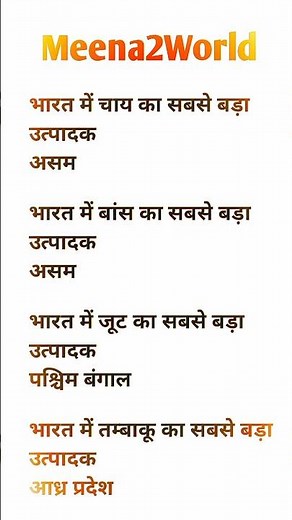 Meena2World
भारत में चाय का सबसे बड़ा
उत्पादक
असम
भारत में बांस का सबसे बड़ा
उत्पादक
असम
भारत में जूट का सबसे बड़ा
उत्पादक
पश्चिम बंगाल
भारत में तम्बाकू का सबसे बड़ा
उत्पादक
आध्र प्रदेश